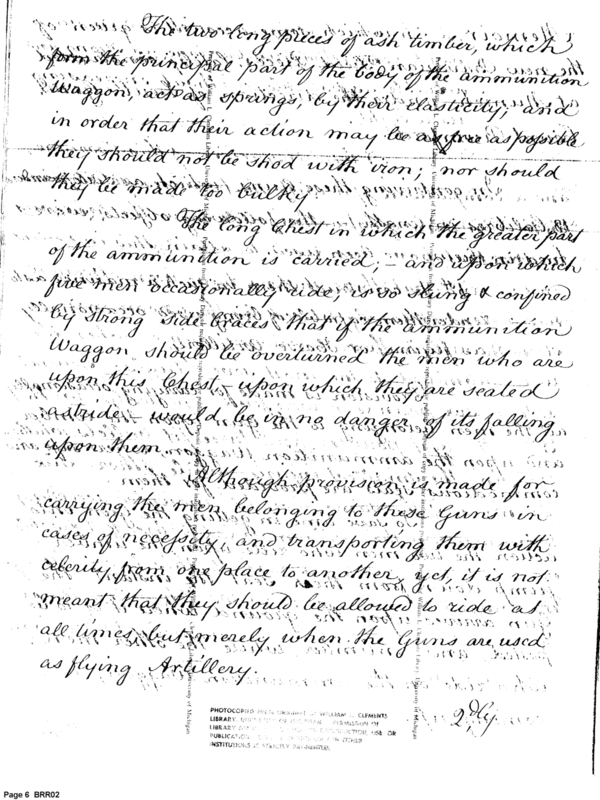 The two long pieces of ash timber, which
form the principal part of the body of the ammunition
Waggon, act as springs, by their elasticity; and
in order that their action may be as free as possible
they should not be shod with iron; nor should
they be made too bulky
The long Chest in which the greater part
of the ammunition is carried; – and upon which
five men occasionally ride, is so slung & confined
by strong side braces, that if the ammunition
Waggon should be overturned the men who are
upon this Chest – upon which they are seated
astride – would be in no danger of its falling
upon them.
Although provision is made for
carrying the men belonging to these Guns in
cases of necessity, and transporting them with
celerity from one place to another, yet, it is not
meant that they should be allowed to ride at
all times, but merely when the Guns are used
as flying Artillery.
2dly
PHOTOCOPIED FROM ORIGINAL AT WILLIAM L. CLEMENTS
LIBRARY, UNIVERSITY OF MICHIGAN. PERMISSION OF
LIBRARY
PUBLICATION
INSTITUTIONS IS STRICTLY PROHIBITED.
Page 6 BRR02